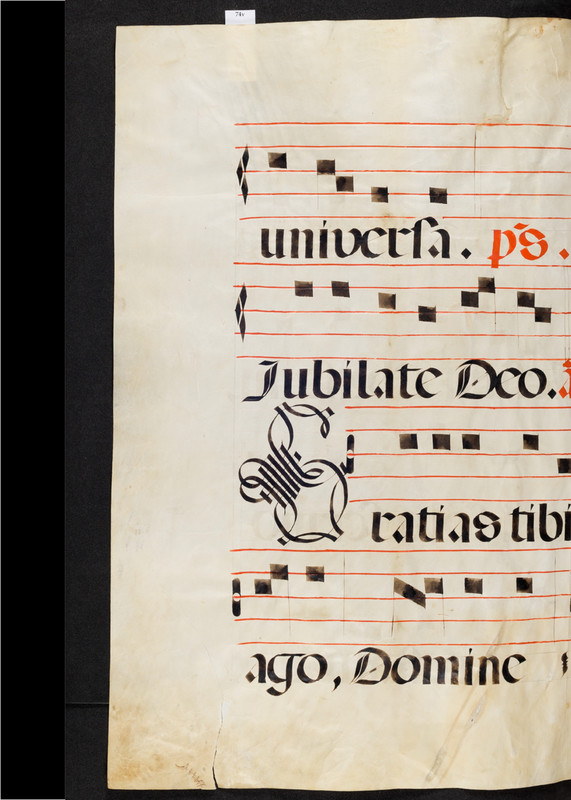 74v
universa. ps.
Jubilate Deo.
Gratias tibi
ago, Domine